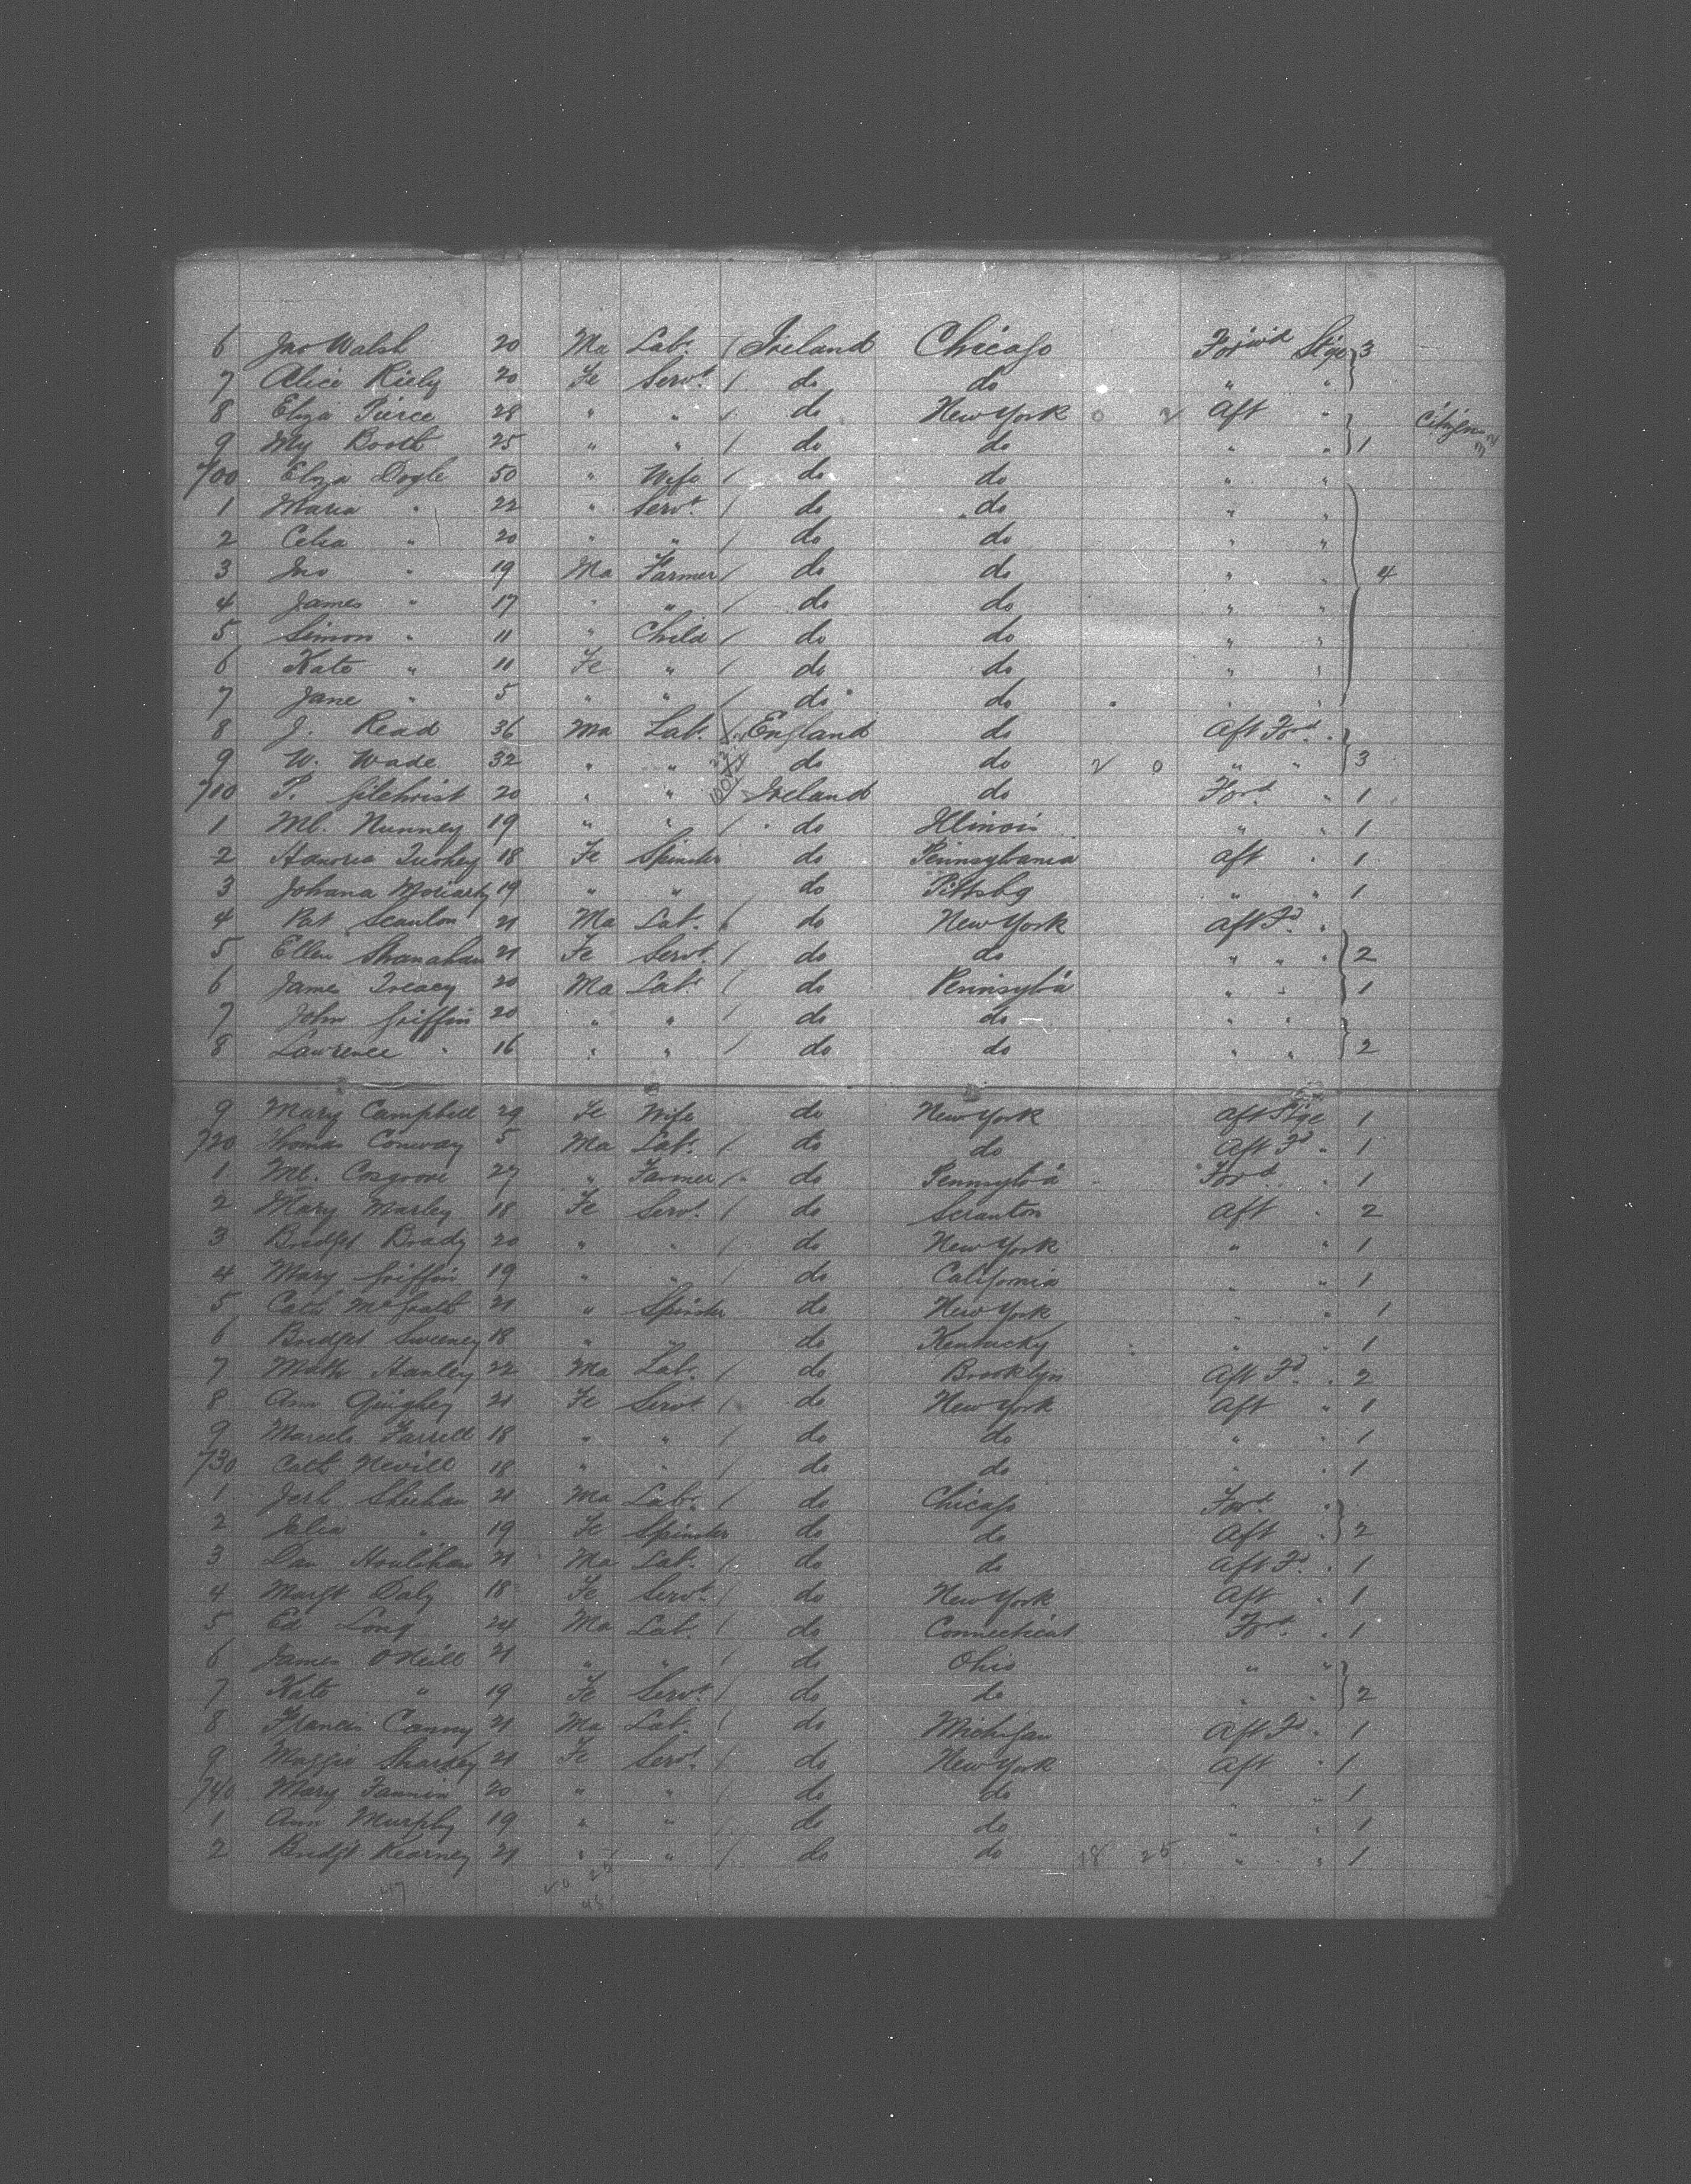 6 Jno Walsh 20 Ma Labr. / Ireland Chicago Forwd Stge 3
7 Alice Riely 20 Fe Servt. / do do " "
8 Eliza Pierce 28 " " / do New York 0 2 Aft " Citizen
9 My Booth 25 " " / do do " " 1
700 Eliza Doyle 50 " Wife / do do " "
1 Maria " 22 " Servt. / do do " "
2 Celia " 20 " " / do do " "
3 Jno " 19 Ma Farmer / do do " " 4
4 James " 17 " " / do do " "
5 Simon " 11 " Child / do do " "
6 Kate " 11 Fe " / do do " "
7 Jane " 5 " " / do do " "
8 J. Read 36 Ma Labr. England do Aft Ford. "
9 W. Wade 32 " " do do 2 0 " " 3
710 P. Gilchrist 20 " " Ireland do Ford " 1
1 Ml. Nunney 19 " " / do Illinois " " 1
2 Honoria Tuohey 18 Fe Spinster do Pennsylvania Aft " 1
3 Johana Moriarty 19 " " do Pittsbg " " 1
4 Pat Scanlon 21 Ma Labr. / do New York Aft Fd. "
5 Ellen Shanahan 21 Fe Servt. / do do " " " 2
6 James Treacy 20 Ma Labr. / do Pennsylva " " 1
7 John Griffin 20 " " / do do " "
8 Lawrence " 16 " " / do do " " 2
9 Mary Campbell 29 Fe Wife do New York Aft Stge 1
720 Thomas Conway 5 Ma Labr. / do do Aft Fd " 1
1 Ml. Cosgrove 27 " Farmer / do Pennsylva Ford. " 1
2 Mary Marley 18 Fe Servt. / do Scranton Aft " 2
3 Bridget Brady 20 " " / do New York " " 1
4 Mary Griffin 19 " " / do California " " 1
5 Cath McGrath 21 " Spinster do New York " " 1
6 Bridget Sweeney 18 " " do Kentucky " " 1
7 Math Hanley 22 Ma Labr. / do Brooklyn Aft Fd. " 2
8 Ann Quighey 21 Fe Servt / do New York Aft " 1
9 Marcela Farrell 18 " " / do do " " 1
730 Cath Nevill 18 " " / do do " " 1
1 Jerh Sheehan 21 Ma Labr. / do Chicago Ford. "
2 " 19 Fe Spinster do do Aft " 2
3 Dan Houlihan 21 Ma Labr. / do do Aft Fd. " 1
4 Margt Daly 18 Fe Servt. / do New York Aft " 1
5 Ed Long 24 Ma Labr. / do Connecticut Ford. " 1
6 James O'Neill 21 " " / do Ohio " "
7 Kate " 19 Fe Servt. / do do " " 2
8 Francis Canny 21 Ma Labr. / do Michigan Aft Fd " 1
9 Maggie Sharkey 21 Fe Servt. / do New York Aft " 1
740 Mary Fannin 20 " " / do do " " 1
1 Ann Murphy 19 " " / do do " " 1
2 Bridgt Kearney 21 " " / do do 18 25 " " 1